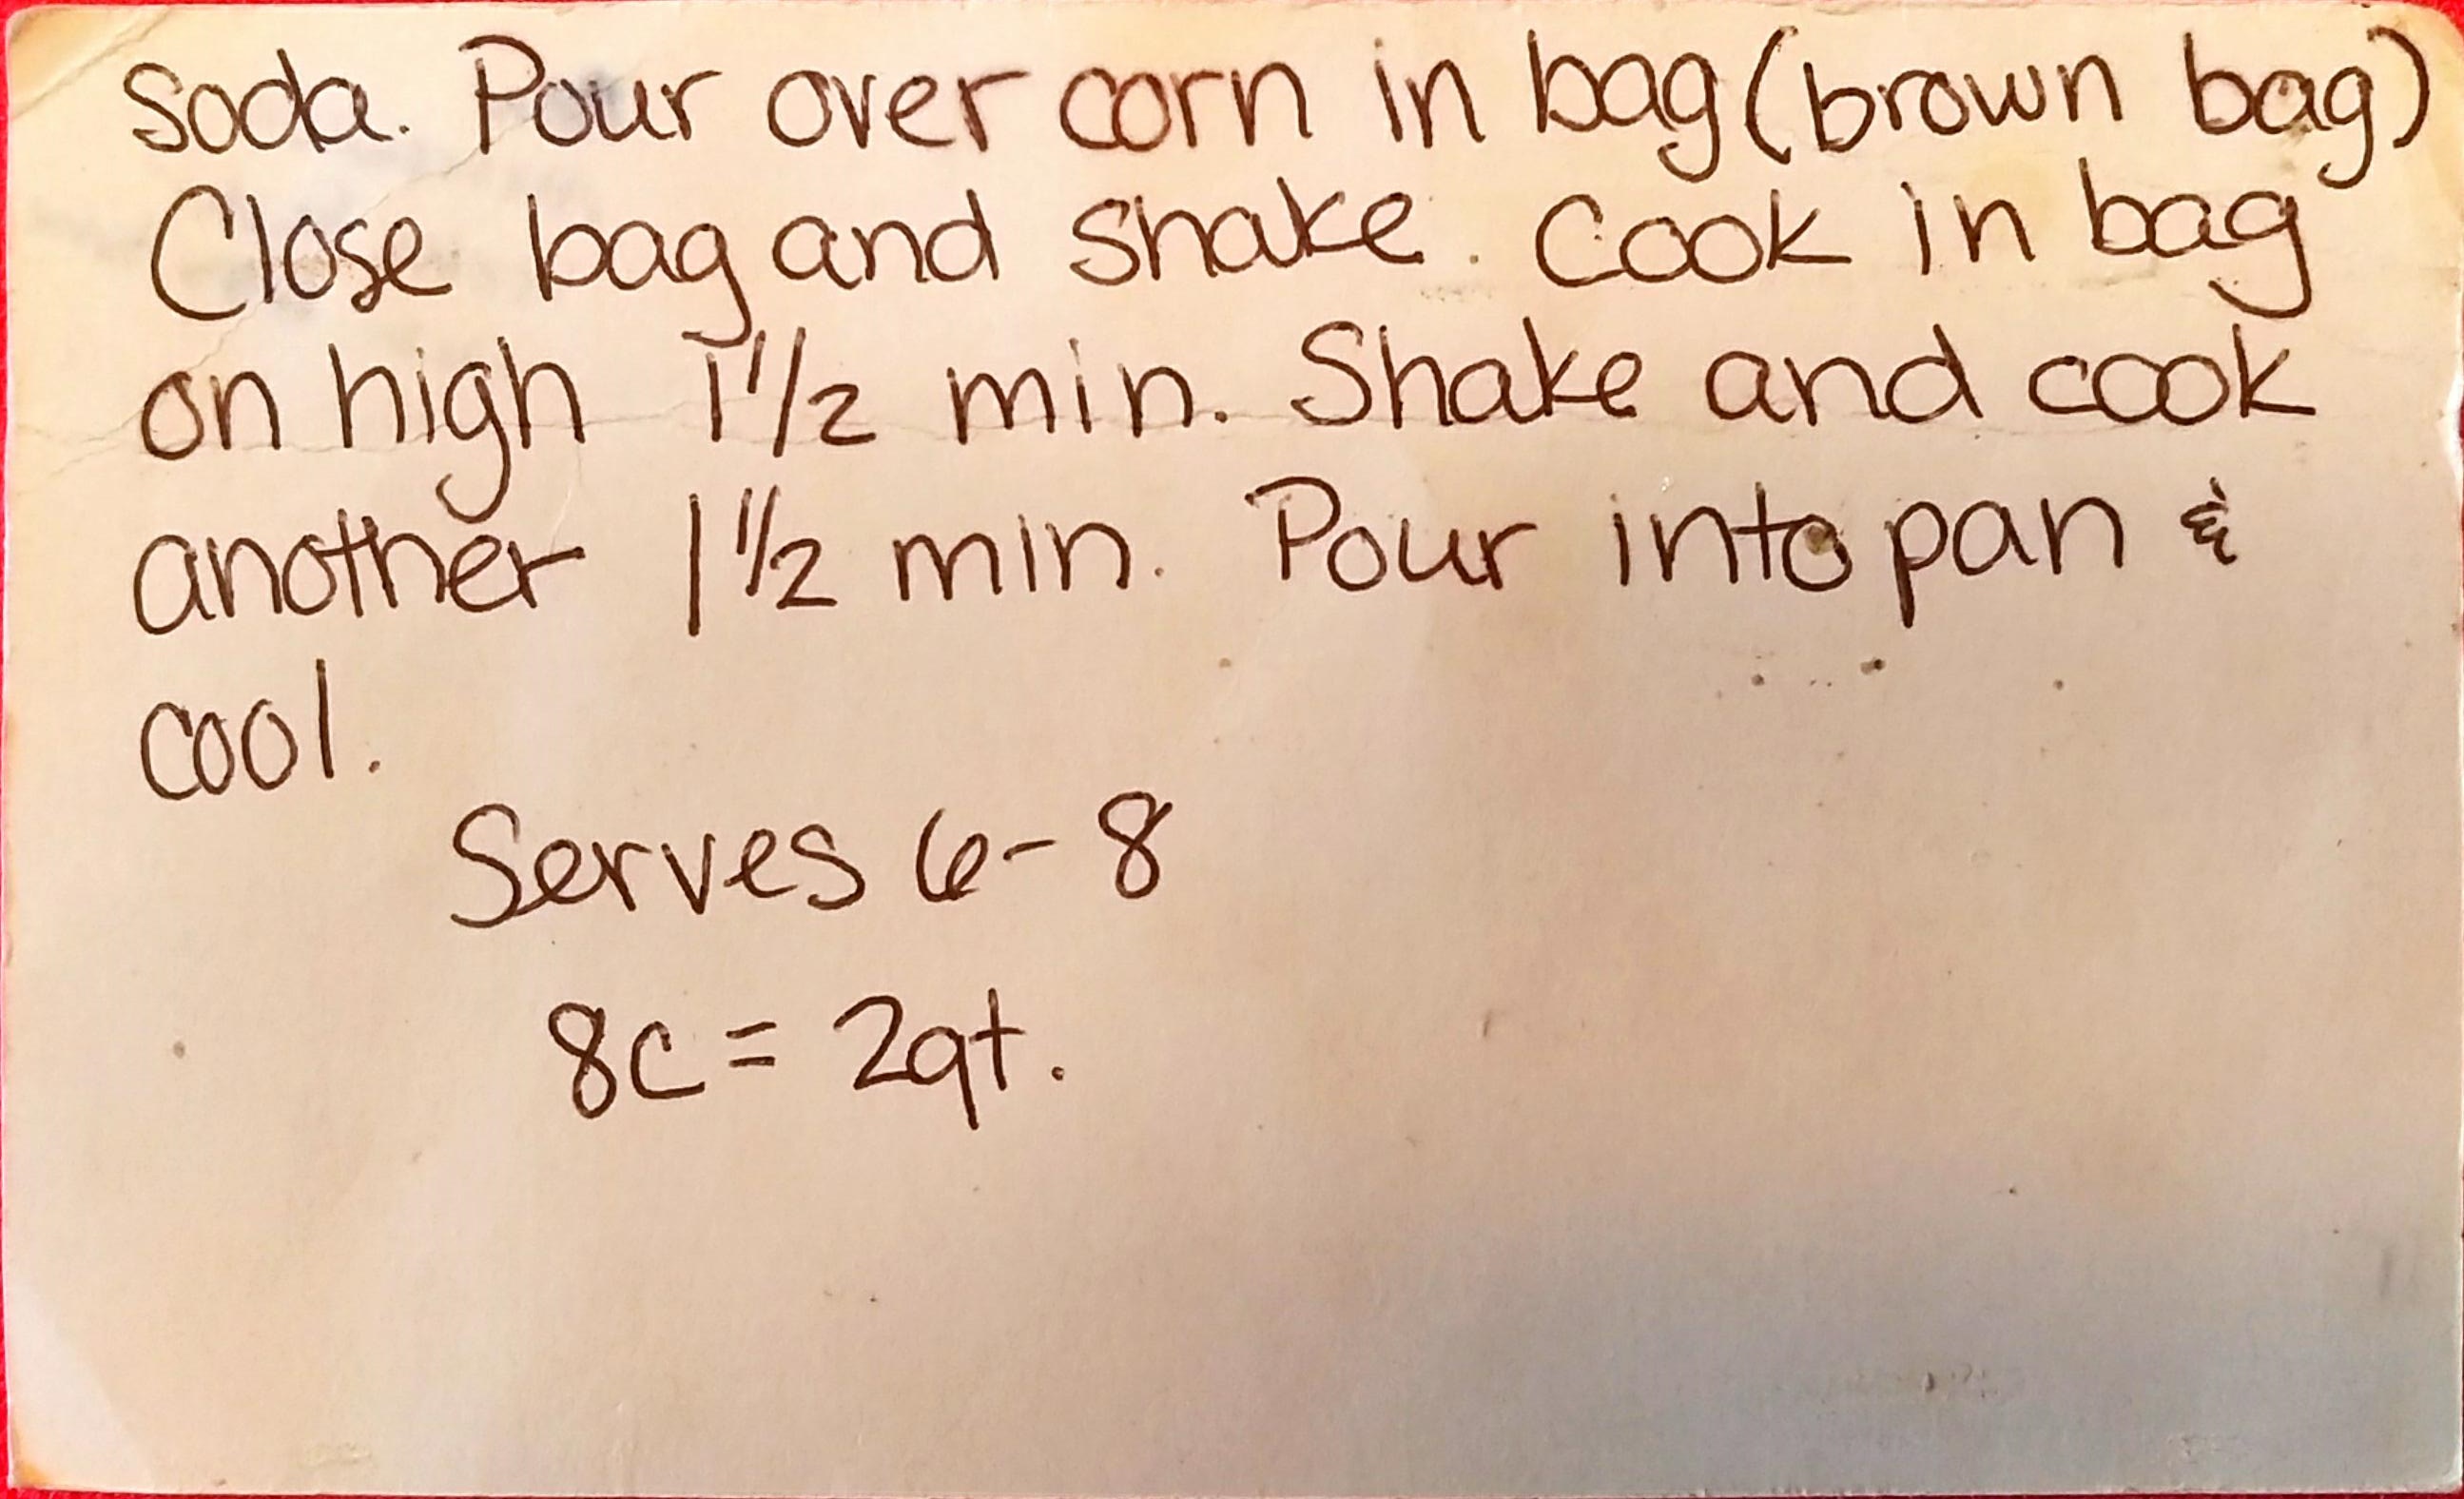 Soda. Pour over corn in bag (brown bag)
Close bag and shake. Cook in bag
on high 1 1/2 min. Shake and cook
another 1 1/2 min. Pour into pan &
cool.
Serves 6-8
8c = 2qt.